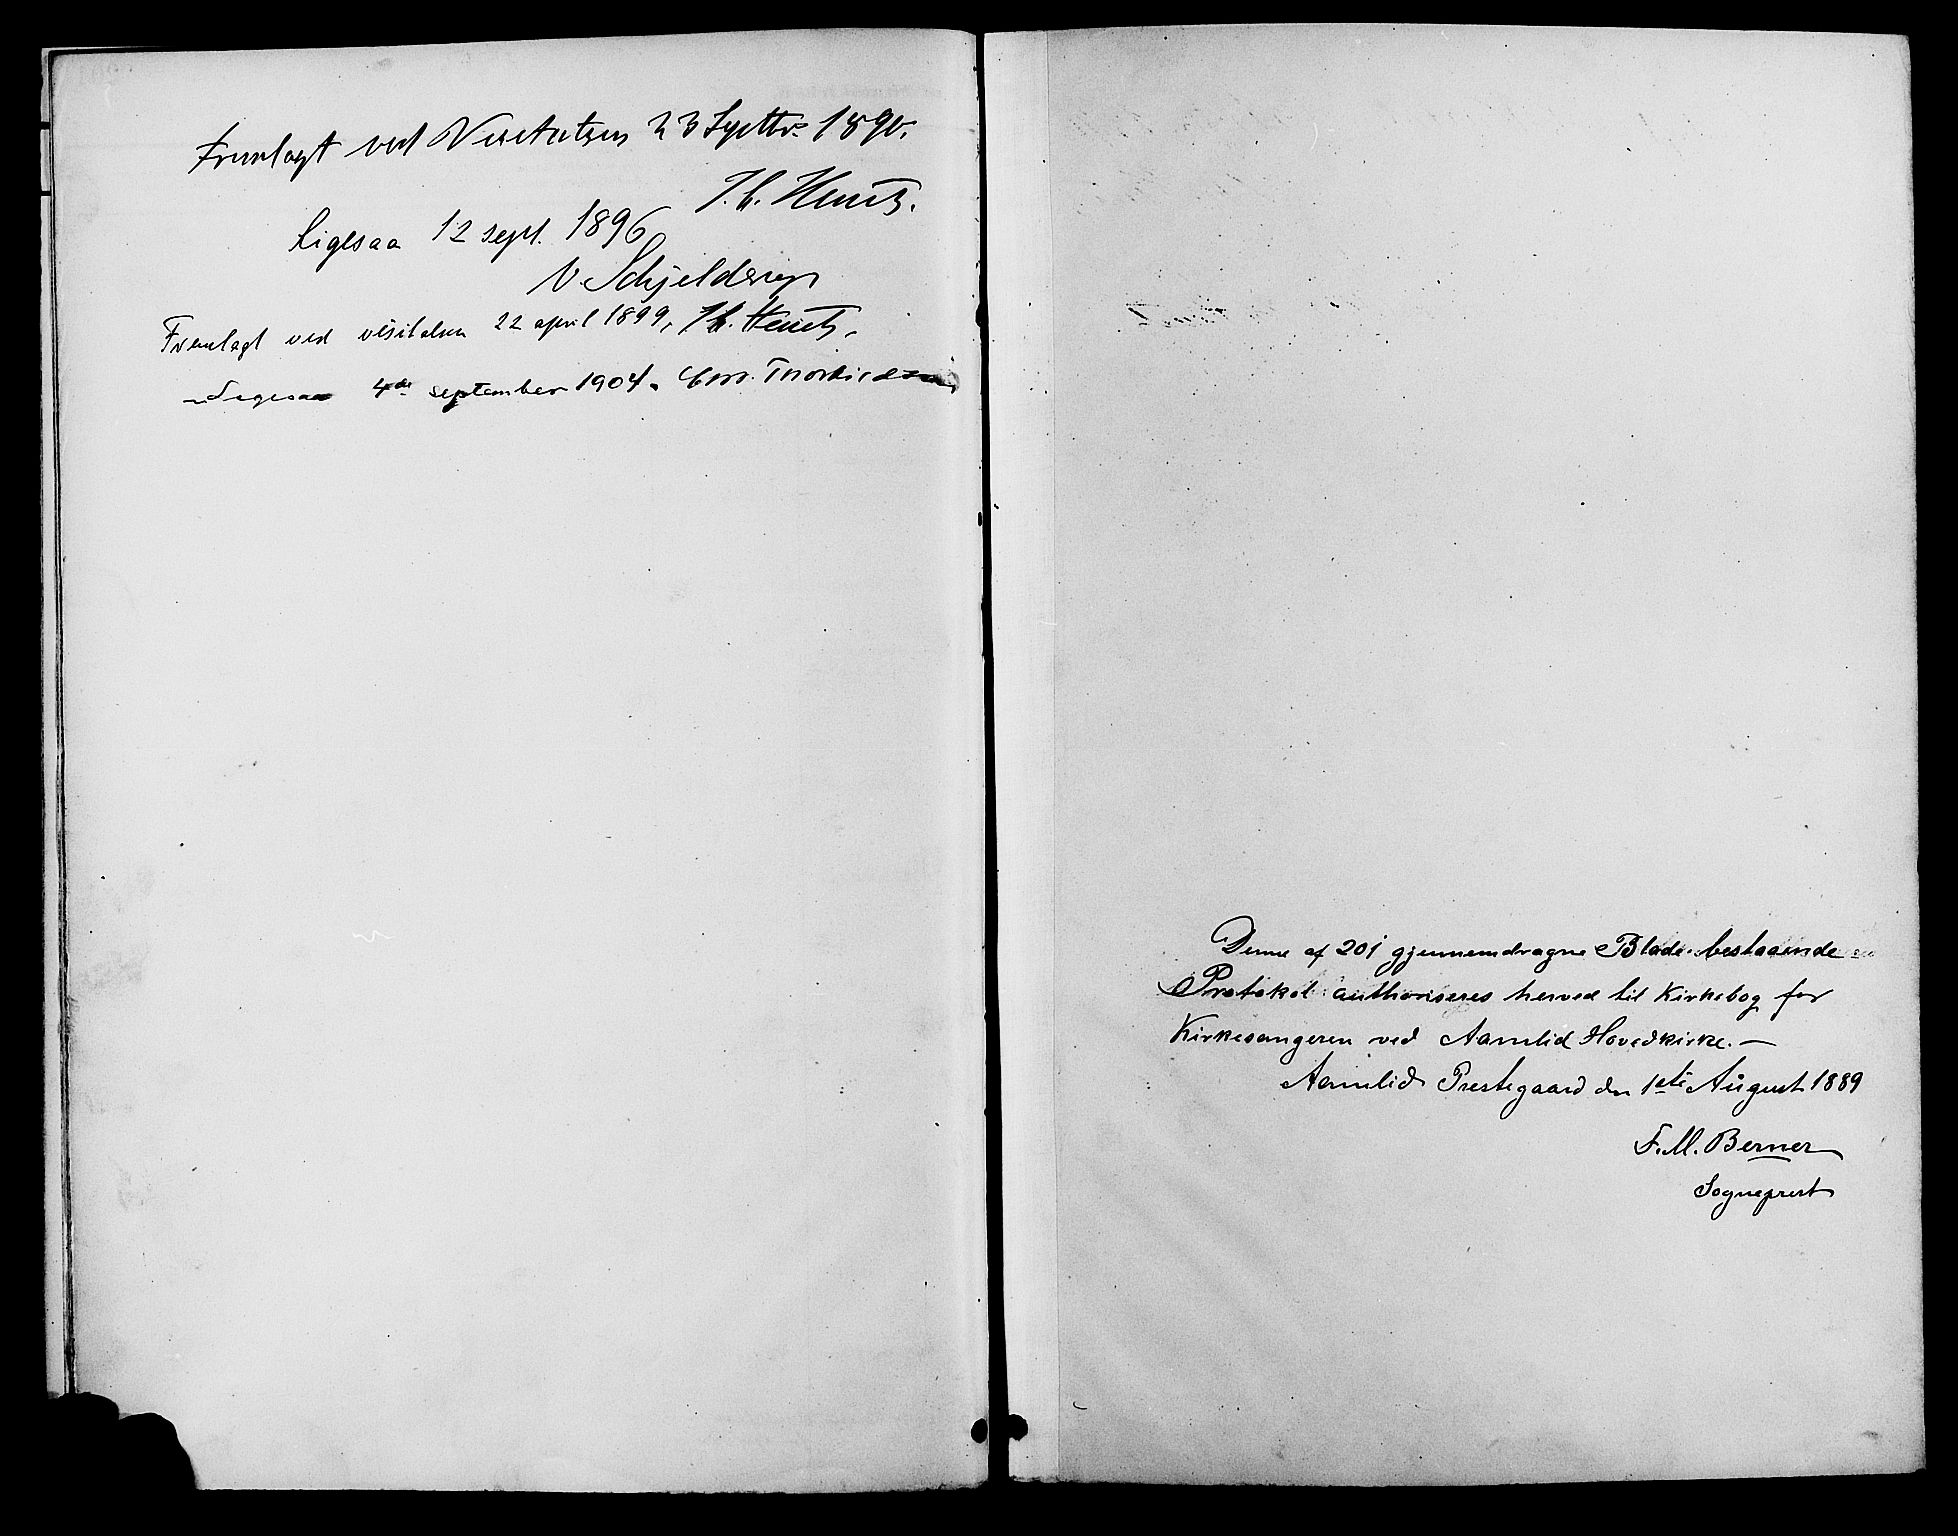 Fremlagt ved Visitatsen 23 Septbr 1890.
J. C. Heuch.
Ligesaa 12 sept. 1896
N. Schjelderup
Fremlagt ved visitatsen 22 april 1899, J C. Heuch.
Ligesaa 4de september 1904.
Denne af 201 gjennemdragne Blade bestaaende
Protokol authoriseres herved til Kirkebog for
Kirkesangeren ved Aamlid Hovedkirke. —
Aamlid Prestegaard den 1ste August 1889
F. M. Berner
Sogneprest